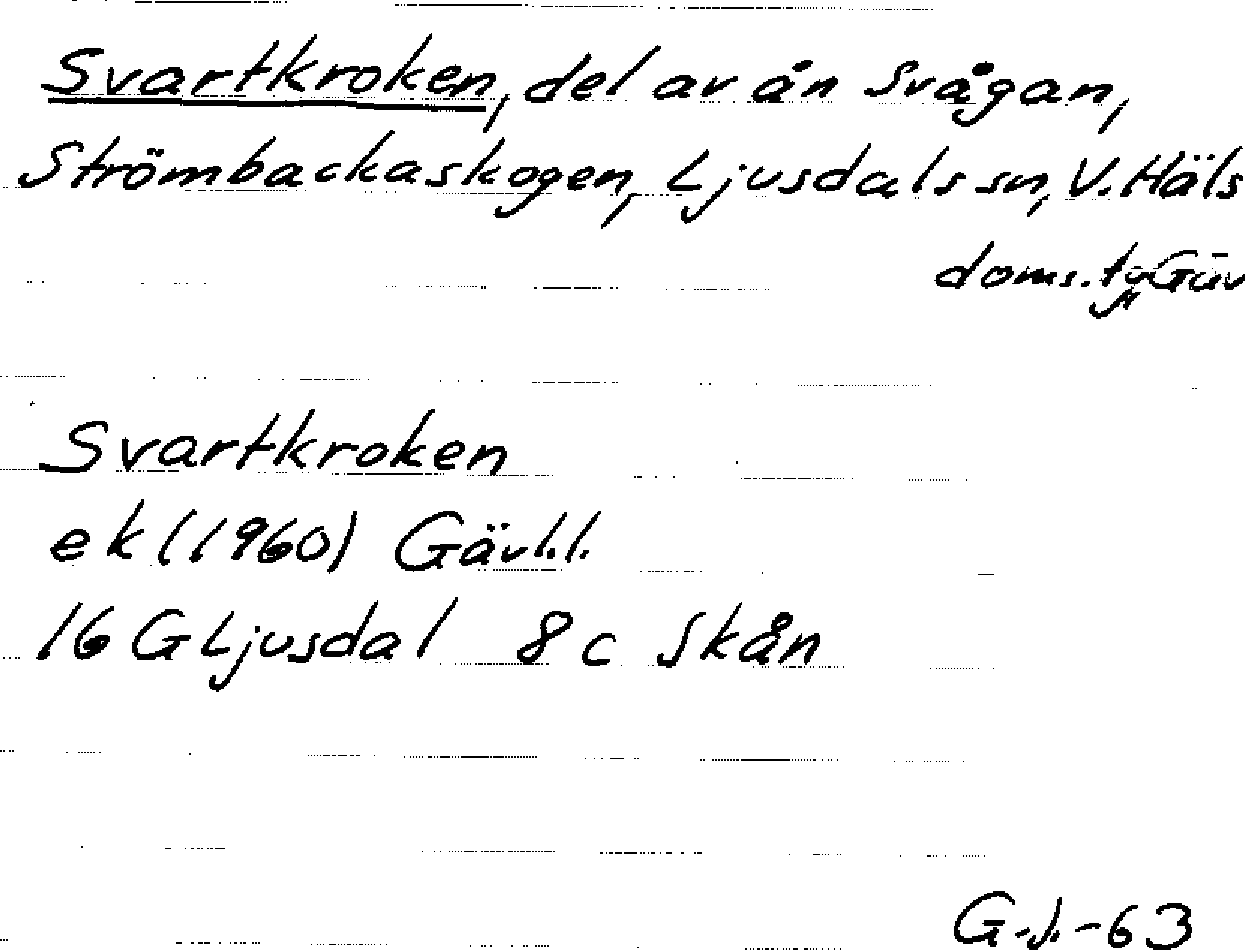 Svartkroken, del av ån Svågan,
Strömbackaskogen, Ljusdals sn, V. Häls
doms. tg Gäv
Svartkroken
ek (1960) Gävl.l.
16 G Ljusdal 8 c Skån
-63